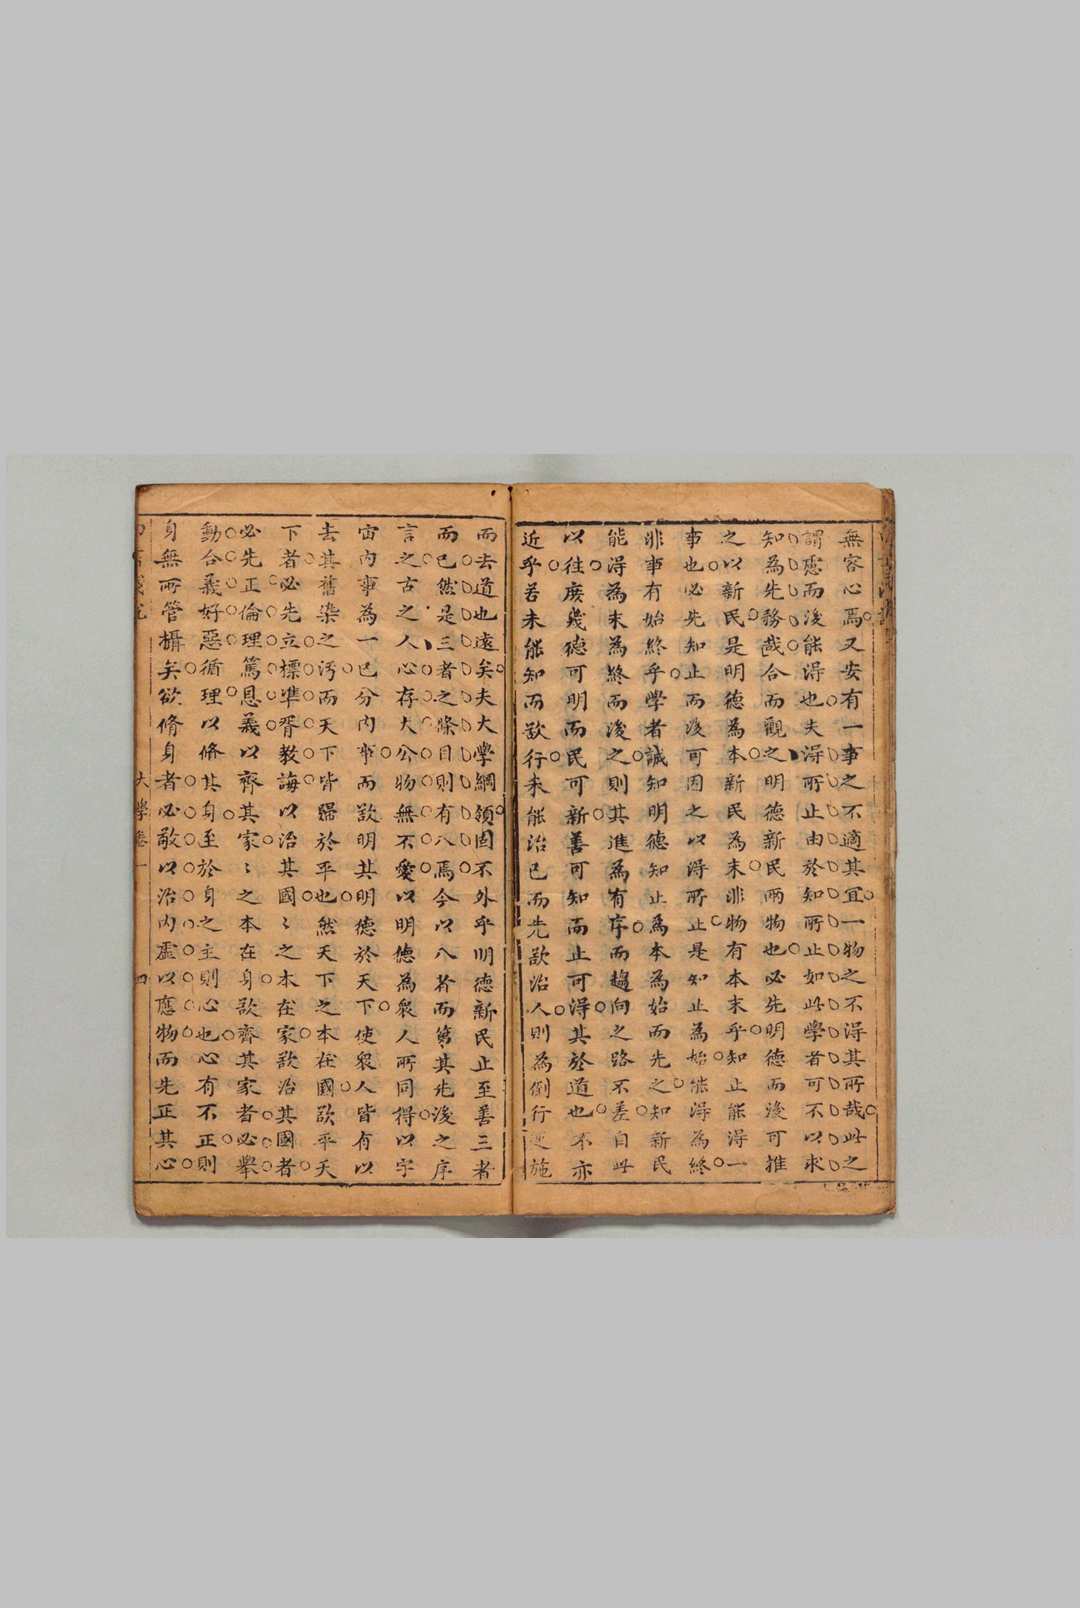 無容心焉又安有一事之不適其宜一物之不得其所哉此之
謂慮而後能得也夫得所止由於知所止如此學者可不以求
知為先務哉合而觀之明德新民兩物也必先明德而後可推
之以新民是明德為本新民為末非物有本末乎知止能得一
事也必先知止而後可因之以得所止是知止為始能得為終
非事有始終乎學者誠知明德知止為本為始而先之知新民
能得為末為終而後之則其進為有序而趨向之路不差自此
以往庶幾德可明而民可新善可知而止可得其於道也不亦
近乎若未能知而欲行未能治己而先欲治人則為倒行逆施
而去道也遠矣夫大學綱領固不外乎明德新民止至善三者
而已然是三者之條目則有八焉今以八者而第其先後之序
言之古之人心存大公物無不愛以明德為衆人所同得以宇
宙內事為一己分內事而欲明其明德於天下使衆人皆有以
去其舊染之汚而天下皆歸於平也然天下之本在國欲平天
下者必先立標準胥教誨以治其國〻之本在家欲治其國者
必先正倫理篤恩義以齊其家〻之本在身欲齊其家者必舉
動合義好惡循理以脩其身至於身之主則心也心有不正則
身無所管攝矣欲脩身者必敬以治內虛以應物而先正其心
大學卷一 四